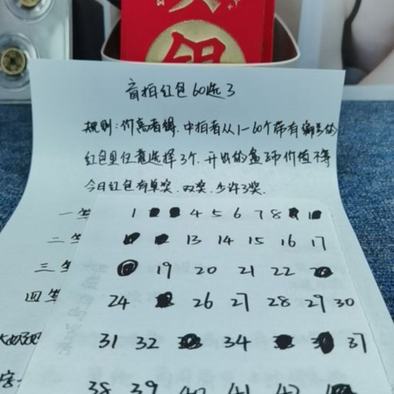 盲拍红包60选3
规则:价高者得,中拍者从1-60个带有编号的
红包里任意选择3个,开出的盒子币价值不等
今日红包有单奖,双奖,少许3奖.
一等 1 4 5 6 7 8
二等 13 14 15 16 17
三等 19 20 21 22
四等 24 26 27 28 29 30
31 32 34 37
38 39 40 41 42